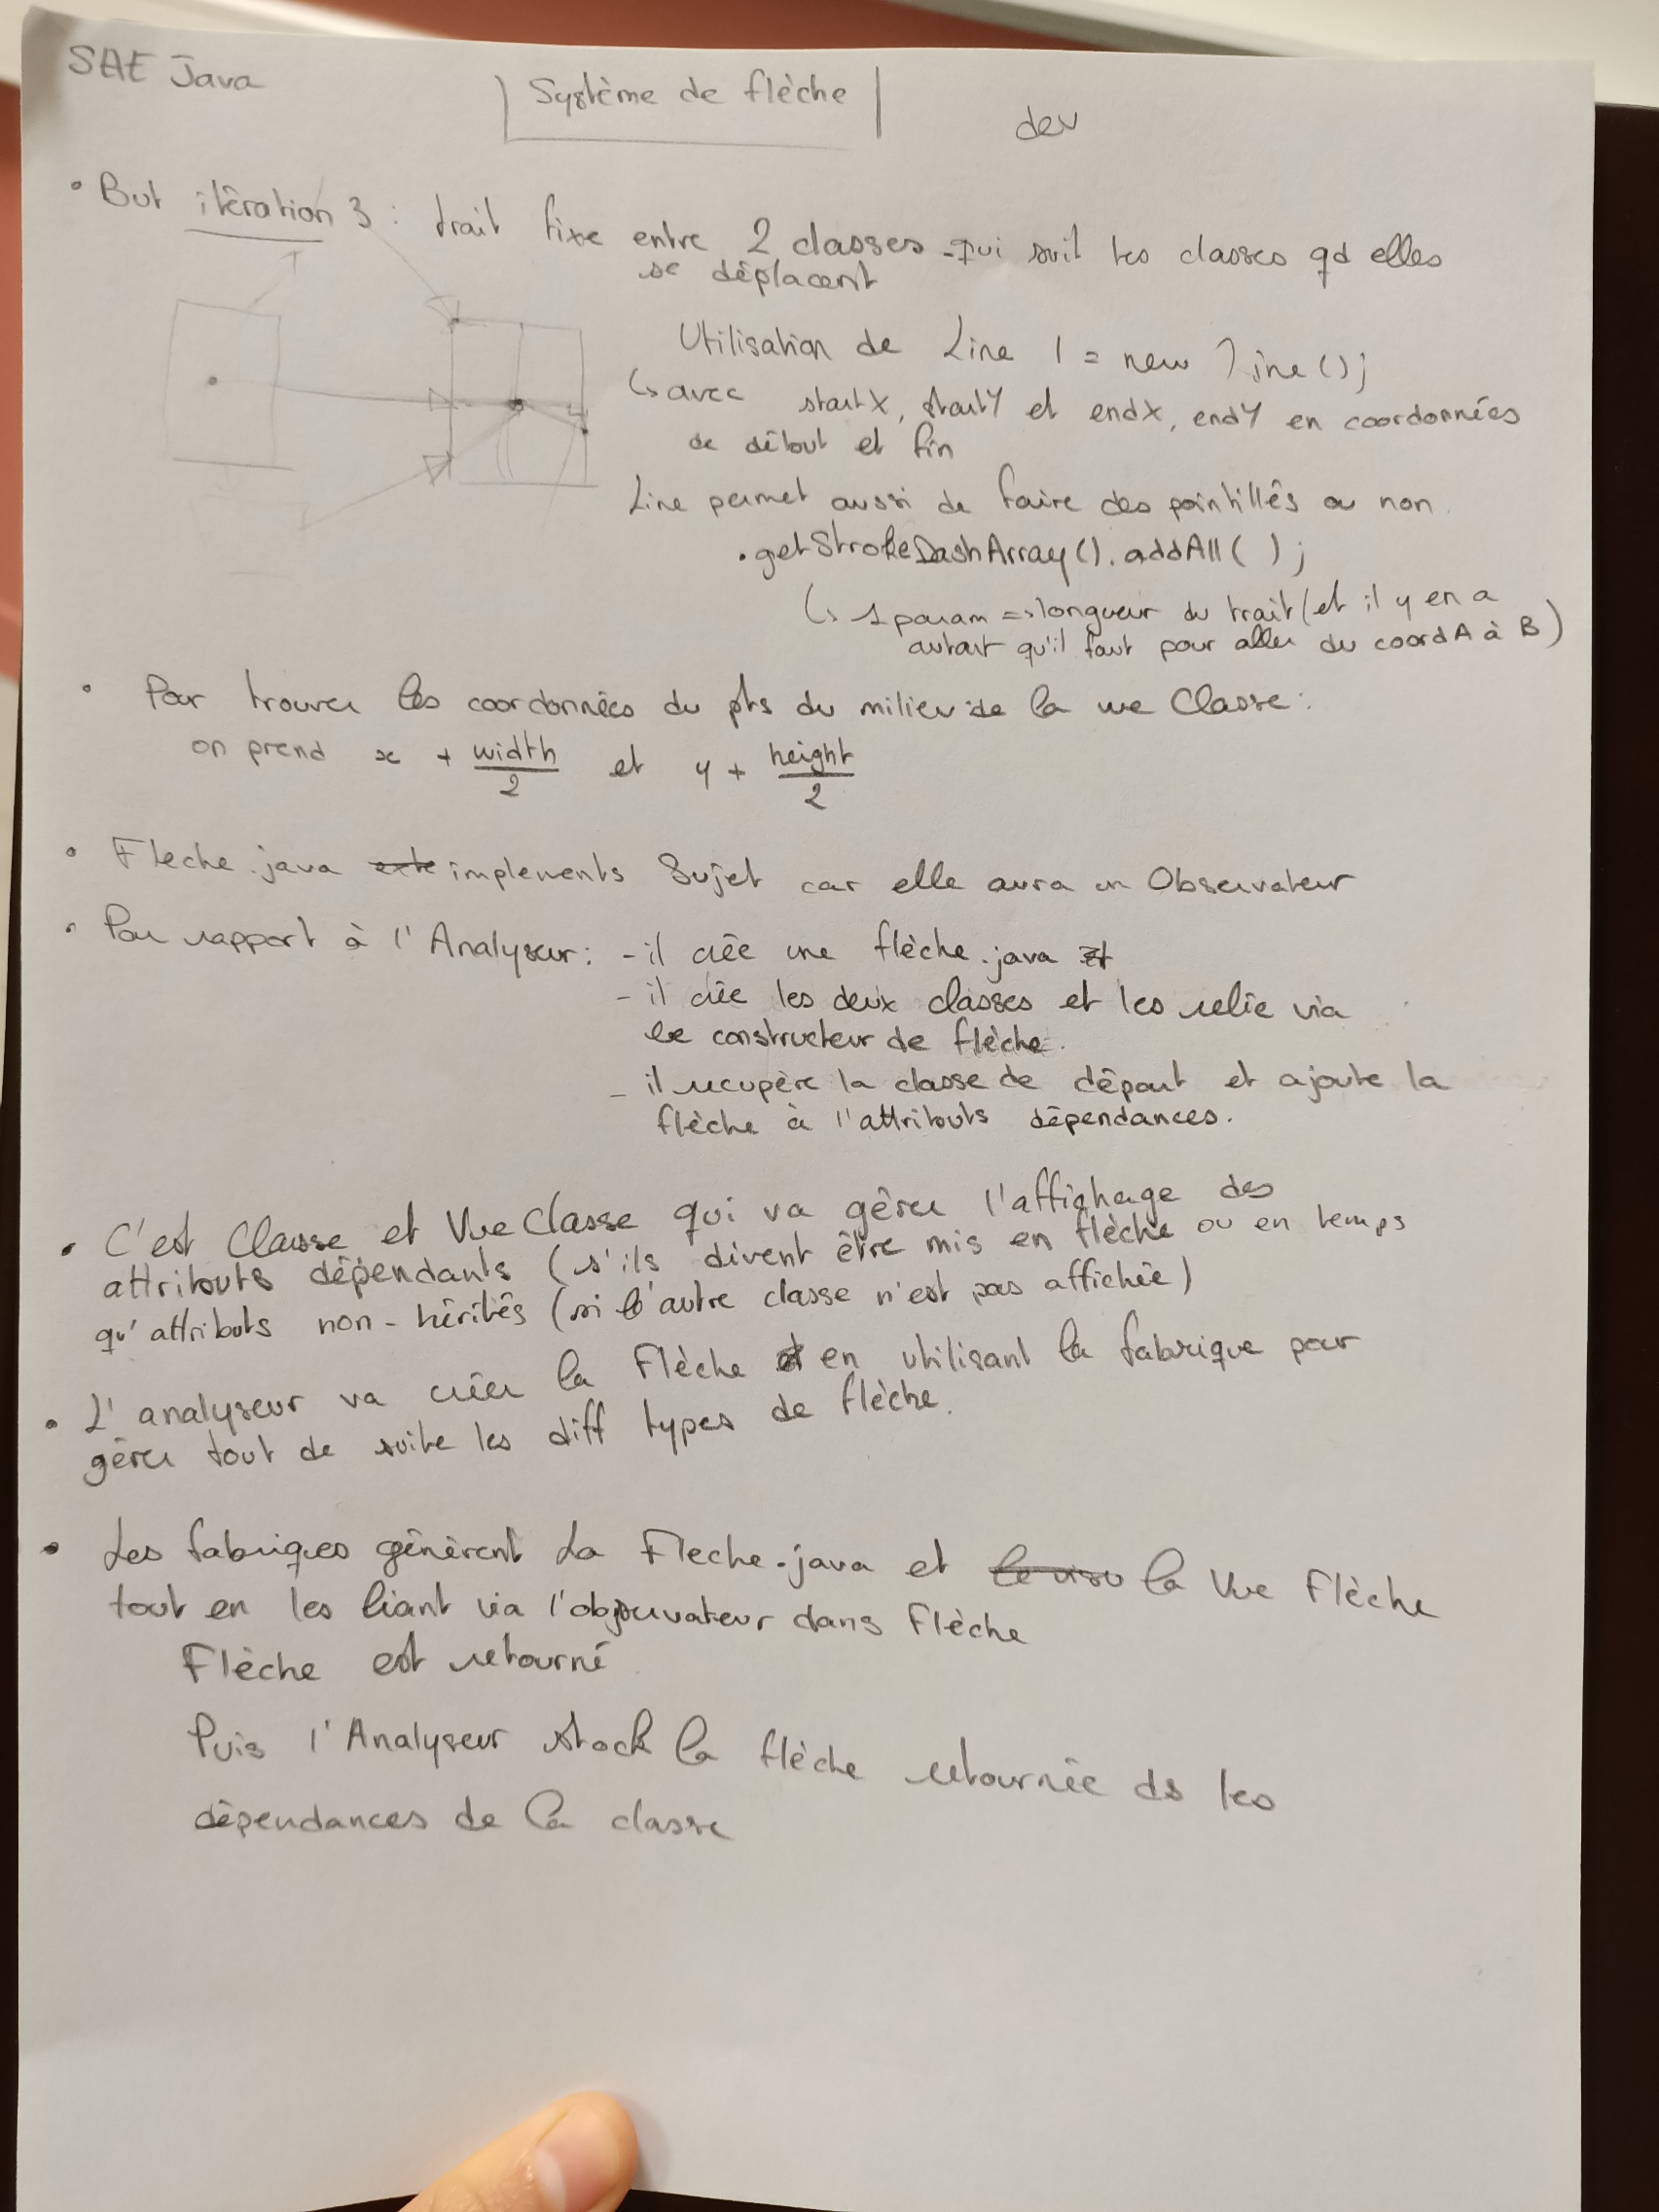 SAE Java
Système de flèche
dev
• But itération 3 : trait fixe entre 2 classes qui suit les classes qd elles
se déplacent
Utilisation de Line l = new line();
↳ avec startX, startY et endX, endY en coordonnées
de début et fin
Line permet aussi de faire des pointillés ou non
.getStrokeDashArray().addAll( );
↳ 1 param => longueur du trait (et il y en a
autant qu'il faut pour aller du coord A à B)
• Pour trouver les coordonnées du pts du milieu de la vue Classe :
on prend x + width/2 et y + height/2
• Fleche.java implements Sujet car elle aura un Observateur
• Par rapport à l'Analyseur : - il crée une flèche.java
- il crée les deux classes et les relie via
le constructeur de flèche.
- il récupère la classe de départ et ajoute la
flèche à l'attributs dépendances.
• C'est Classe et Vue Classe qui va gérer l'affichage des
attributs dépendants (s'ils divent être mis en flèche ou en temps
qu'attributs non-hérités (si l'autre classe n'est pas affichée)
• L'analyseur va créer la Flèche en utilisant la fabrique pour
gérer tout de suite les diff types de flèche.
• Les fabriques génèrent La Fleche.java et la Vue Flèche
tout en les liant via l'observateur dans Flèche
Flèche est retourné
Puis l'Analyseur stock la flèche retournée ds les
dépendances de la classe